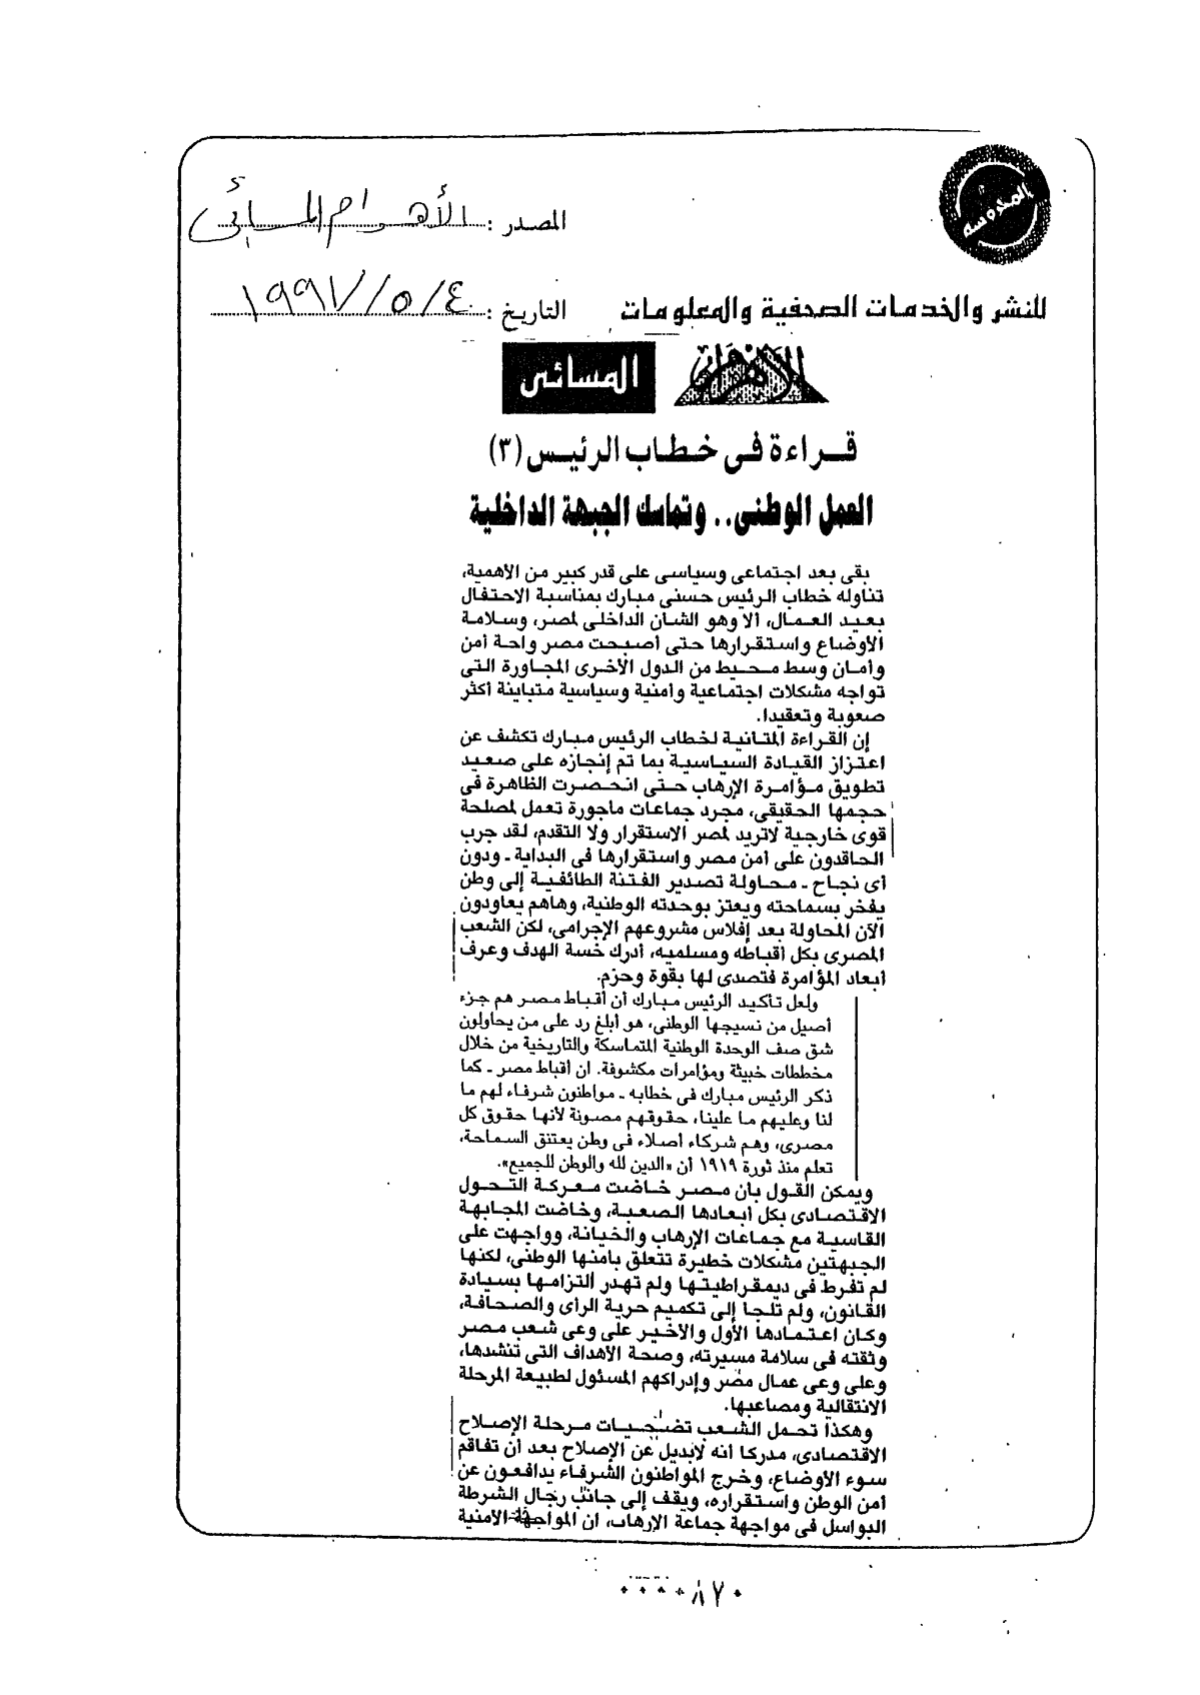 المحروسة
المصدر : الأهرام المسائى
للنشر والخدمات الصحفية والمعلومات
التاريخ : ٤/٥/١٩٩٧
الأهرام المسائى
قراءة فى خطاب الرئيس (٣)
العمل الوطنى.. وتماسك الجبهة الداخلية
بقى بعد اجتماعى وسياسى على قدر كبير من الأهمية،
تناوله خطاب الرئيس حسنى مبارك بمناسبة الاحتفال
بعيد العمال، ألا وهو الشأن الداخلى لمصر، وسلامة
الأوضاع واستقرارها حتى أصبحت مصر واحة أمن
وأمان وسط محيط من الدول الأخرى المجاورة التى
تواجه مشكلات اجتماعية وأمنية وسياسية متباينة أكثر
صعوبة وتعقيدا.
إن القراءة المتأنية لخطاب الرئيس مبارك تكشف عن
اعتزاز القيادة السياسية بما تم إنجازه على صعيد
تطويق مؤامرة الإرهاب حتى انحصرت الظاهرة فى
حجمها الحقيقى، مجرد جماعات مأجورة تعمل لمصلحة
قوى خارجية لاتريد لمصر الاستقرار ولا التقدم، لقد جرب
الحاقدون على أمن مصر واستقرارها فى البداية ـ ودون
أى نجاح ـ محاولة تصدير الفتنة الطائفية إلى وطن
يفخر بسماحته ويعتز بوحدته الوطنية، وهاهم يعاودون
الآن المحاولة بعد إفلاس مشروعهم الإجرامى، لكن الشعب
المصرى بكل أقباطه ومسلميه، أدرك خسة الهدف وعرف
أبعاد المؤامرة فتصدى لها بقوة وحزم.
ولعل تأكيد الرئيس مبارك أن أقباط مصر هم جزء
أصيل من نسيجها الوطنى، هو أبلغ رد على من يحاولون
شق صف الوحدة الوطنية المتماسكة والتاريخية من خلال
مخططات خبيثة ومؤامرات مكشوفة. ان أقباط مصر ـ كما
ذكر الرئيس مبارك فى خطابه ـ مواطنون شرفاء لهم ما
لنا وعليهم ما علينا، حقوقهم مصونة لأنها حقوق كل
مصرى، وهم شركاء أصلاء فى وطن يعتنق السماحة،
تعلم منذ ثورة ١٩١٩ أن «الدين لله والوطن للجميع».
ويمكن القول بأن مصر خاضت معركة التحول
الاقتصادى بكل أبعادها الصعبة، وخاضت المجابهة
القاسية مع جماعات الإرهاب والخيانة، وواجهت على
الجبهتين مشكلات خطيرة تتعلق بأمنها الوطنى، لكنها
لم تفرط فى ديمقراطيتها ولم تهدر التزامها بسيادة
القانون، ولم تلجأ إلى تكميم حرية الرأى والصحافة،
وكان اعتمادها الأول والأخير على وعى شعب مصر
وثقته فى سلامة مسيرته، وصحة الأهداف التى تنشدها،
وعلى وعى عمال مصر وإدراكهم المسئول لطبيعة المرحلة
الانتقالية ومصاعبها.
وهكذا تحمل الشعب تضحيات مرحلة الإصلاح
الاقتصادى، مدركا أنه لابديل عن الإصلاح بعد أن تفاقم
سوء الأوضاع، وخرج المواطنون الشرفاء يدافعون عن
أمن الوطن واستقراره، ويقف إلى جانب رجال الشرطة
البواسل فى مواجهة جماعة الإرهاب، ان المواجهة الأمنية
٠٠٠٠٨٧٠